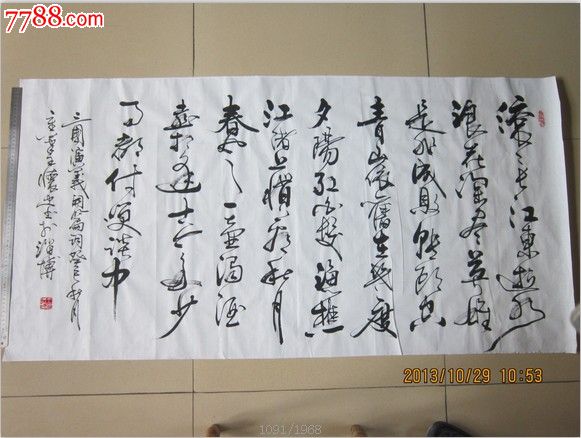 7788.com
滚滚长江東逝水
浪花淘尽英雄
是非成败转头空
青山依舊在幾度
夕陽红白发渔樵
江渚上惯看秋月
春风一壶濁酒
喜相逢古今多少
事都付笑谈中
三国演義开篇词癸巳秋月
于淄博
2013/10/29 10:53
1091/1968